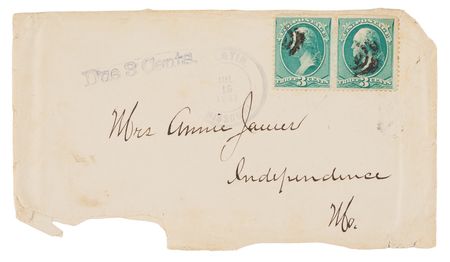 Due 3 Cents.
U.S. POSTAGE
THREE CENTS
3
U.S. POSTAGE
THREE CENTS
3
Mrs Annie James
Independence
Mo.